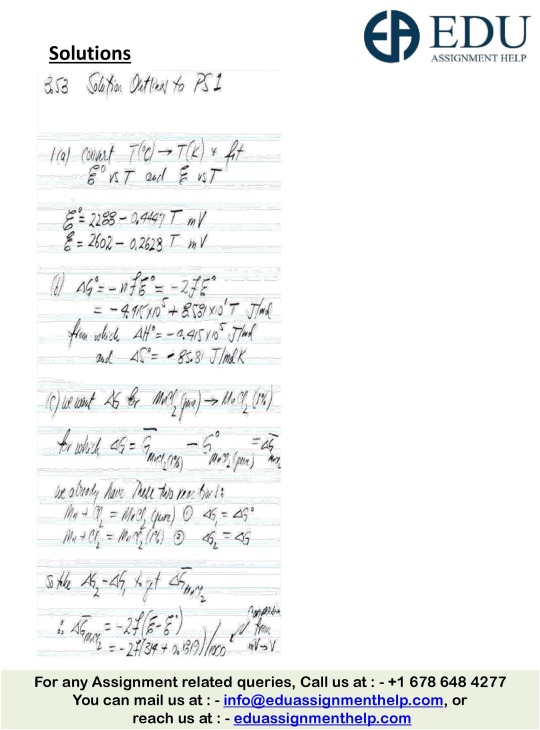 EDU
ASSIGNMENT HELP
Solutions
3.53 Solution Outlines to PS 1
1(a) convert T(°C) → T(K) & fit
ℰ° vs T and ℰ vs T
ℰ° = 2288 − 0.4447 T mV
ℰ = 2602 − 0.2628 T mV
(b) ΔG° = −nℱℰ° = −2ℱℰ°
= −4.415×10⁵ + 8.581×10¹ T J/mol
from which ΔH° = −4.415×10⁵ J/mol
and ΔS° = −85.81 J/mol K
(c) we want ΔG for MnCl₂ (pure) → MnCl₂ (1%)
for which ΔG = G̅ MnCl₂(1%) − G° MnCl₂(pure) = ΔG̅ MnCl₂
we already have these two reactions:
Mn + Cl₂ = MnCl₂ (pure) ① ΔG₁ = ΔG°
Mn + Cl₂ = MnCl₂ (1%) ② ΔG₂ = ΔG
so take ΔG₂ − ΔG₁ to get ΔG̅ MnCl₂
∴ ΔG̅ MnCl₂ = −2ℱ(ℰ − ℰ°)
= −2ℱ(314 + 0.1819)/1000
from
mV→V
For any Assignment related queries, Call us at : - +1 678 648 4277
You can mail us at : - info@eduassignmenthelp.com, or
reach us at : - eduassignmenthelp.com